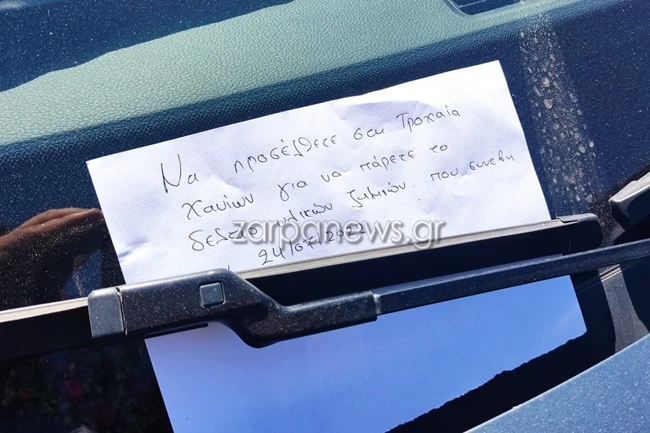 Να προσέλθετε στη Τροχαία
Χανίων για να πάρετε το
δελτίο υλικών ζημιών. που συνέβη
24/07/2022
zarpanews.gr